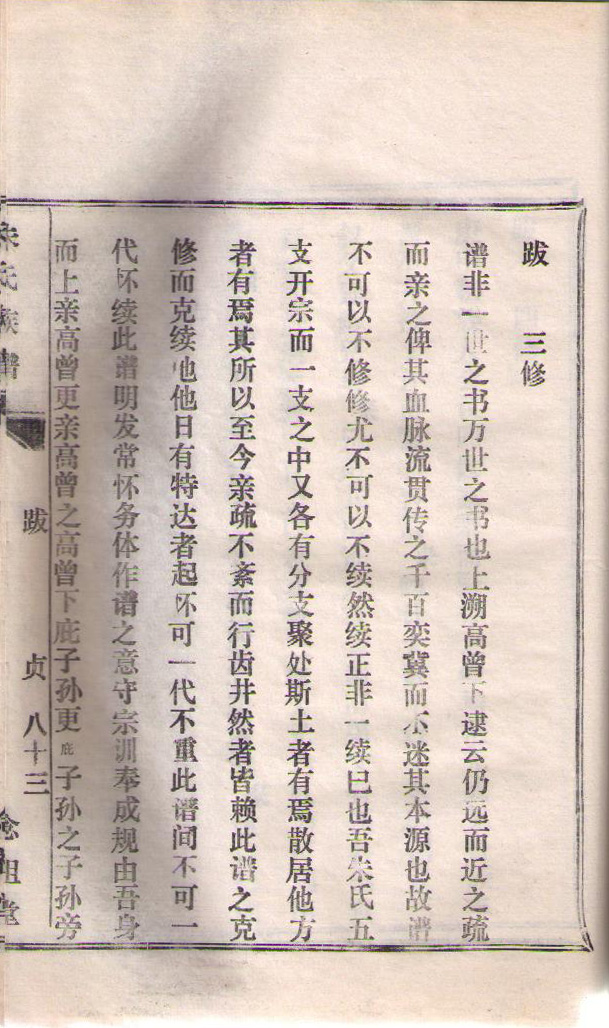 跋 三修
谱非一世之书万世之书也上溯高曾下逮云仍远而近之疏
而亲之俾其血脉流贯传之千百奕冀而不迷其本源也故谱
不可以不修修尤不可以不续然续正非一续巳也吾朱氏五
支开宗而一支之中又各有分支聚处斯土者有焉散居他方
者有焉其所以至今亲疏不紊而行齿井然者皆赖此谱之克
修而克续也他日有特达者起怀可一代不重此谱间不可一
代怀续此谱明发常怀务体作谱之意守宗训奉成规由吾身
而上亲高曾更亲高曾之高曾下庇子孙更庇子孙之子孙旁
朱氏族谱 跋 贞 八十三 念祖堂